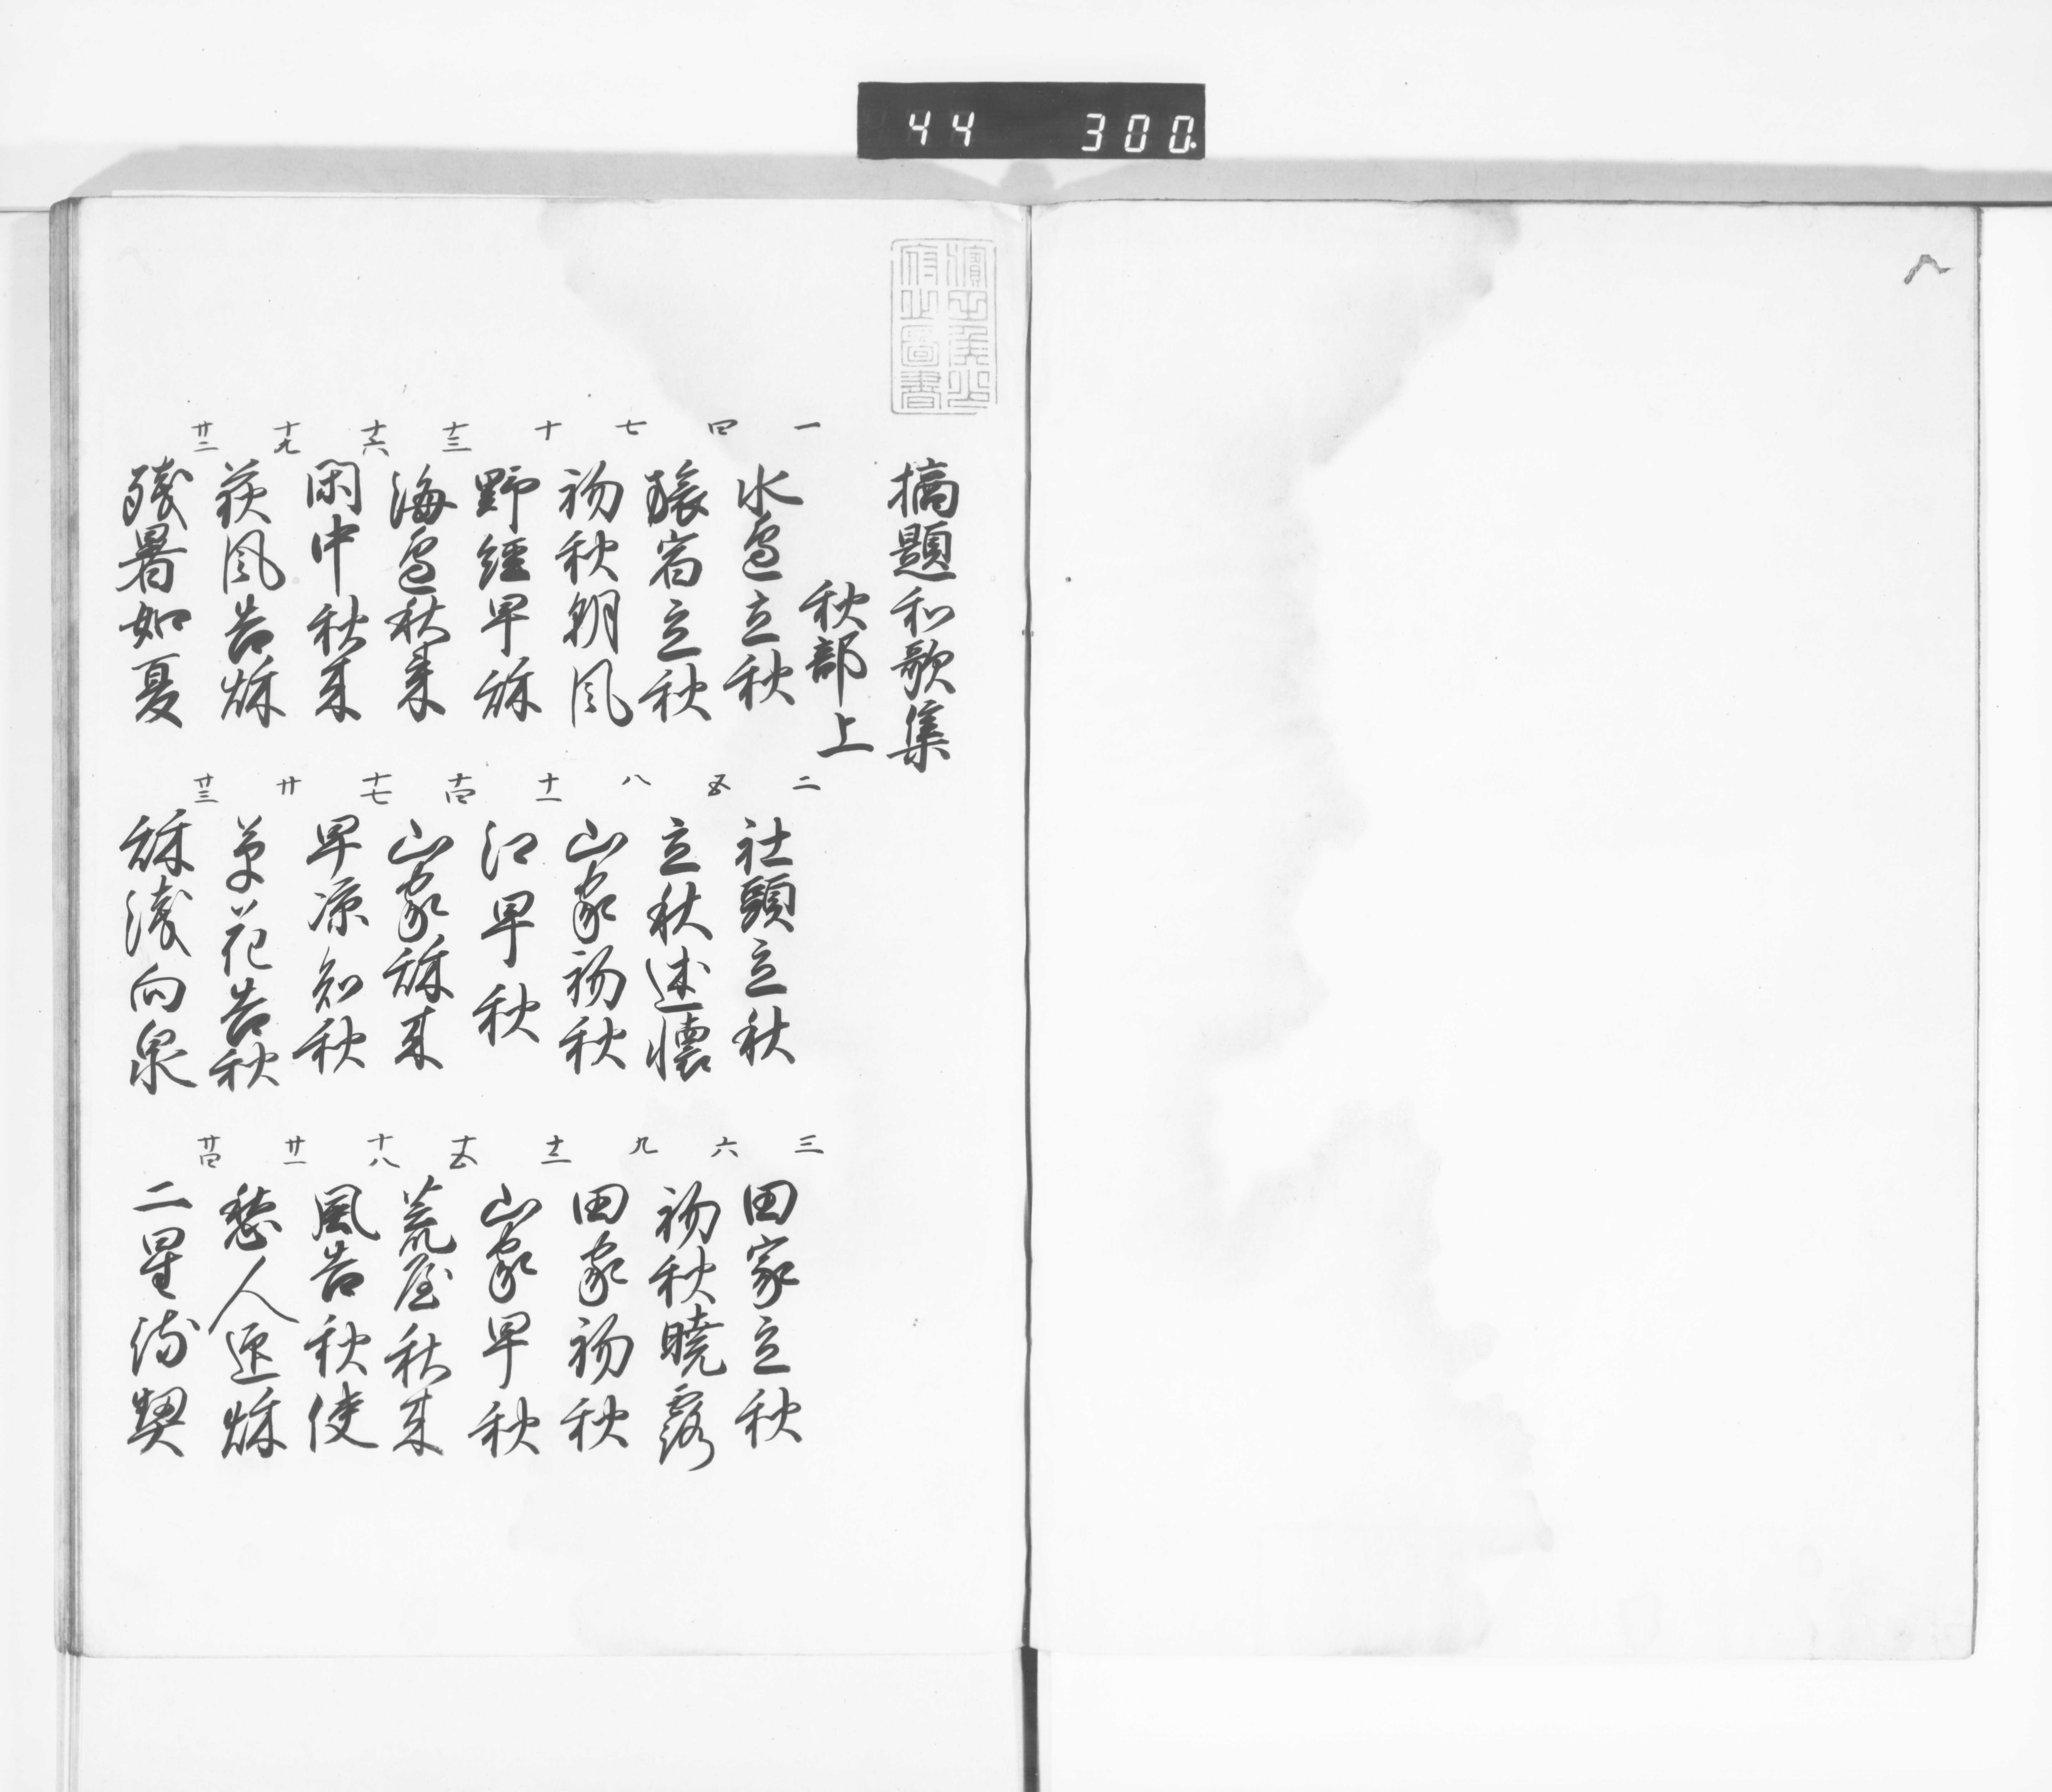 44 300
摘題和歌集
秋部上
一 水邉立秋
二 社頭立秋
三 田家立秋
四 旅宿立秋
五 立秋述懐
六 初秋暁露
七 初秋朝風
八 山家初秋
九 田家初秋
十 野経早秌
十一 江早秋
十二 山家早秋
十三 海邉秋来
十四 山家秌来
十五 荒屋秋来
十六 閑中秋来
十七 早凉知秋
十八 風告秋使
十九 荻風告秌
廿 草花告秋
廿一 愁人秌
廿二 残暑如夏
廿三 秌浅向泉
廿四 二星待契